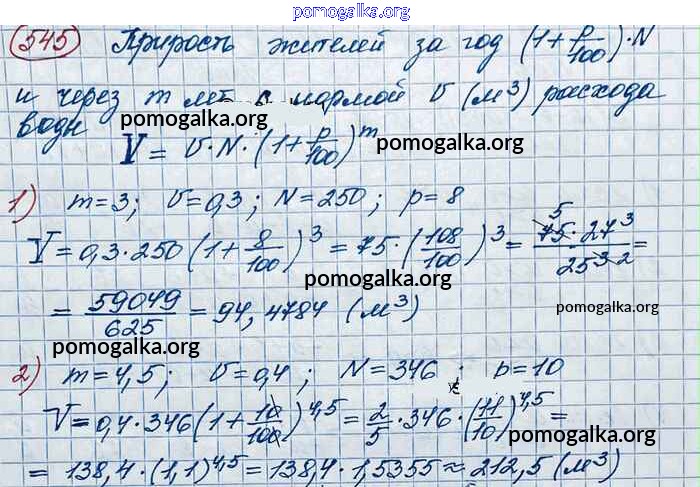 pomogalka.org
545 Прирость жителей за год (1+p/100)·N
и через m лет с нормой υ (м³) расхода
воды
pomogalka.org
V = υ·N·(1+p/100)^m
pomogalka.org
1) m=3; υ=0,3; N=250; p=8
V=0,3·250(1+8/100)^3=75·(108/100)^3= 5 75·27^3/25^3 2=
pomogalka.org
pomogalka.org
= 59049/625 = 94,4784 (м³)
pomogalka.org
2) m=4,5; υ=0,4; N=346; p=10
V=0,4·346(1+10/100)^4,5=2/5·346·(11/10)^4,5=
pomogalka.org
= 138,4·(1,1)^4,5=138,4·1,5355≈212,5(м³)